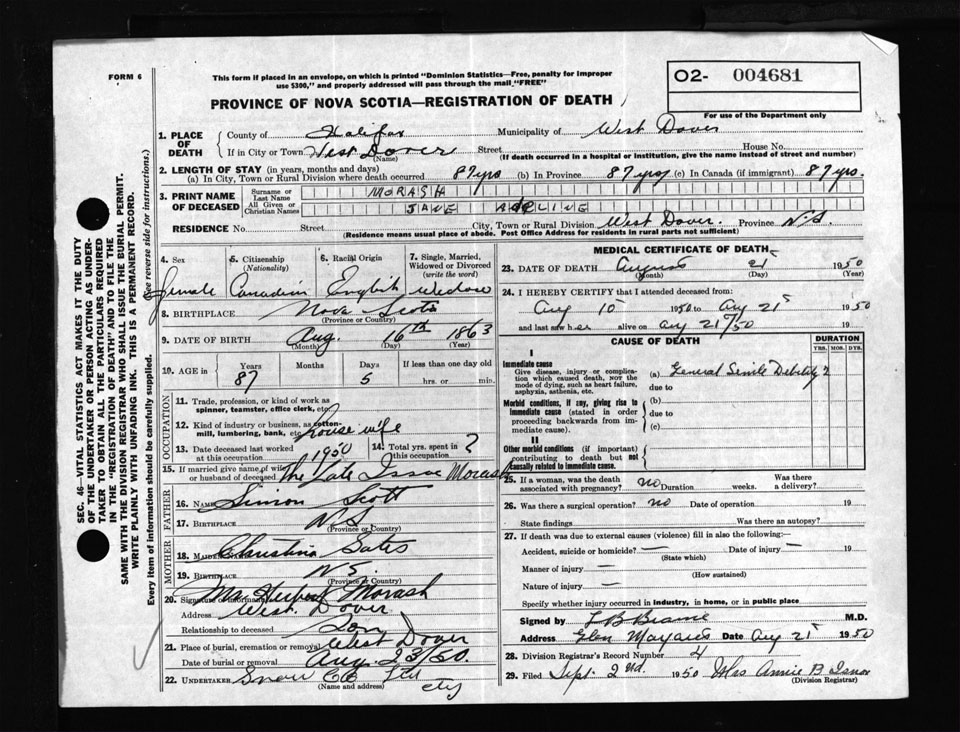 FORM 6
This form if placed in an envelope, on which is printed "Dominion Statistics—Free, penalty for improper
use $300," and properly addressed will pass through the mail "FREE"
O2- 004681
For use of the Department only
PROVINCE OF NOVA SCOTIA—REGISTRATION OF DEATH
1. PLACE OF DEATH
County of Halifax Municipality of West Dover
If in City or Town West Dover Street House No.
(Name) (If death occurred in a hospital or institution, give the name instead of street and number)
2. LENGTH OF STAY (in years, months and days)
(a) In City, Town or Rural Division where death occurred 87 yrs (b) In Province 87 yrs (c) In Canada (if immigrant) 87 yrs.
3. PRINT NAME OF DECEASED
Surname or Last Name MORASH
All Given or Christian Names JANE ADLINE
RESIDENCE No. Street City, Town or Rural Division West Dover. Province N.S.
(Residence means usual place of abode. Post Office Address for residents in rural parts not sufficient)
4. Sex 5. Citizenship (Nationality) 6. Racial Origin 7. Single, Married, Widowed or Divorced (write the word)
Female Canadian English Widow
8. BIRTHPLACE Nova Scotia
(Province or Country)
9. DATE OF BIRTH Aug. 16th 1863
(Month) (Day) (Year)
10. AGE in Years Months Days If less than one day old
87 5 hrs. or min.
OCCUPATION
11. Trade, profession, or kind of work as
spinner, teamster, office clerk, etc.
12. Kind of industry or business, as cotton-
mill, lumbering, bank, etc. house wife
13. Date deceased last worked at this occupation 1950 14. Total yrs. spent in this occupation ?
15. If married give name of wife or husband of deceased The Late Isaac Morash
FATHER
16. NAME Simon Scott
17. BIRTHPLACE N.S.
(Province or Country)
MOTHER
18. MAIDEN NAME Christina
19. BIRTHPLACE N.S.
(Province or Country)
20. Signature of informant Mr. Morash
Address West Dover
Relationship to deceased Son
21. Place of burial, cremation or removal West Dover
Date of burial or removal Aug. 23/50.
22. UNDERTAKER Snow Co Ltd
(Name and address) city
MEDICAL CERTIFICATE OF DEATH
23. DATE OF DEATH August 21 1950
(Month) (Day) (Year)
24. I HEREBY CERTIFY that I attended deceased from:
Aug 10 1950 to Aug 21 1950
and last saw her alive on Aug 21/50
CAUSE OF DEATH DURATION
YRS. MOS. DYS.
I
Immediate cause
Give disease, injury or complication which caused death, NOT the mode of dying, such as heart failure, asphyxia, asthenia, etc.
(a) General Senile Debility ?
due to
Morbid conditions, if any, giving rise to immediate cause (stated in order proceeding backwards from immediate cause).
(b)
due to
(c)
II
Other morbid conditions (if important) contributing to death but not causally related to immediate cause.
25. If a woman, was the death associated with pregnancy? no Duration weeks. Was there a delivery?
26. Was there a surgical operation? no Date of operation 19
State findings Was there an autopsy?
27. If death was due to external causes (violence) fill in also the following:—
Accident, suicide or homicide? — Date of injury — 19
(State which)
Manner of injury —
(How sustained)
Nature of injury —
Specify whether injury occurred in industry, in home, or in public place
Signed by M.D.
Address Glen Date Aug 21 1950
28. Division Registrar's Record Number 4
29. Filed Sept. 2nd. 1950 Mrs Annie B Isnor
(Division Registrar)
SEC. 46—VITAL STATISTICS ACT MAKES IT THE DUTY
OF THE UNDERTAKER OR PERSON ACTING AS UNDER-
TAKER TO OBTAIN ALL THE PARTICULARS REQUIRED
IN THE "REGISTRATION OF DEATH" AND TO FILE THE
SAME WITH THE DIVISION REGISTRAR WHO SHALL ISSUE THE BURIAL PERMIT.
WRITE PLAINLY WITH UNFADING INK. THIS IS A PERMANENT RECORD.
Every item of information should be carefully supplied. (See reverse side for instructions.)